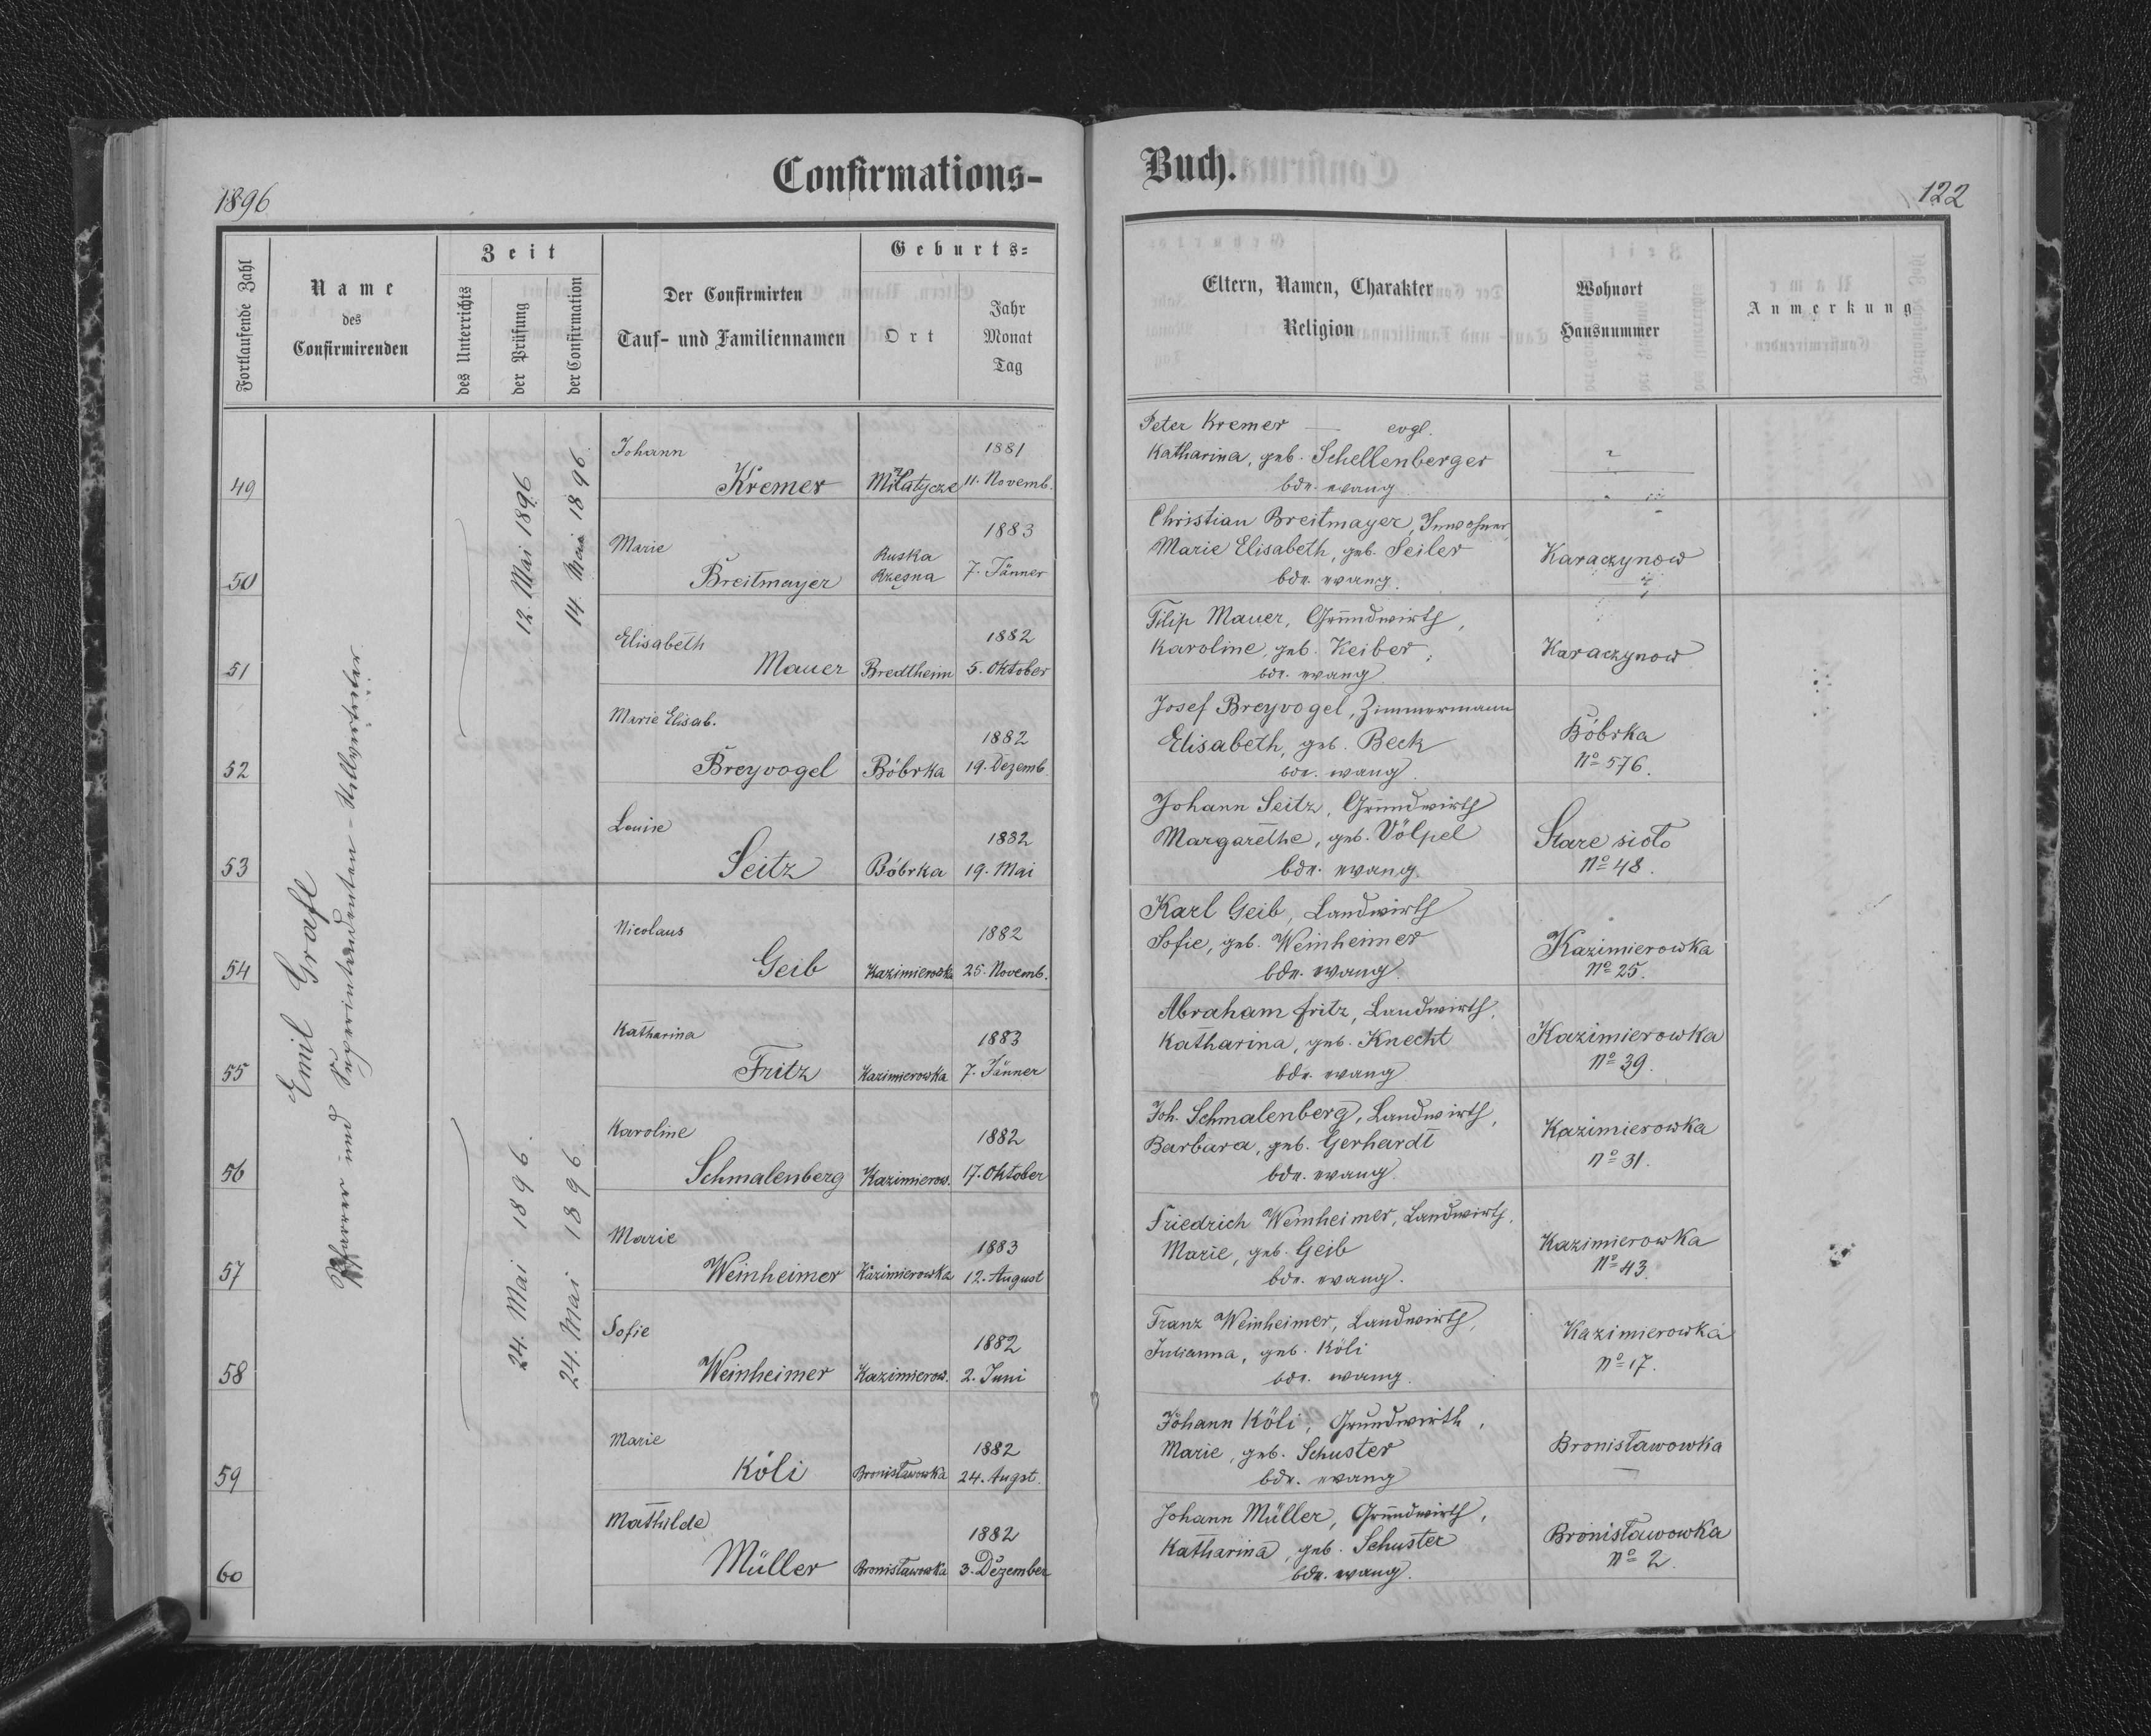 Confirmations-
Buch.
1896
122
Fortlaufende Zahl
Name
des
Confirmirenden
Zeit
des Unterrichts
der Prüfung
der Confirmation
Der Confirmirten
Tauf- und Familiennamen
Geburts-
Ort
Jahr
Monat
Tag
Eltern, Namen, Charakter
Religion
Wohnort
Hausnummer
Anmerkung
Emil Grafl
Pfarrer und Superintendenten-Stellvertreter
12. Mai 1896
14. Mai 1896
24. Mai 1896.
24. Mai 1896.
49
Johann
Kremer
Miłatycze
1881
11. Novemb.
Peter Kremer — evgl.
Katharina, geb. Schellenberger
bde. evang.
50
Marie
Breitmayer
Ruska
Rzęsna
1883
7. Jänner
Christian Breitmayer, Inwohner
Marie Elisabeth, geb. Seiler
bde. evang.
Karaczynow
51
Elisabeth
Mauer
Bredtheim
1882
5. Oktober
Filip Mauer, Grundwirth,
Karoline, geb. Keiber,
bde. evang.
Karaczynow
52
Marie Elisab.
Breyvogel
Bóbrka
1882
19. Dezemb.
Josef Breyvogel, Zimmermann
Elisabeth, geb. Beck
bde. evang.
Bóbrka
No 576.
53
Louise
Seitz
Bóbrka
1882
19. Mai
Johann Seitz, Grundwirth
Margarethe, geb. Völpel
bde. evang.
Stare sioło
No 48.
54
Nicolaus
Geib
Kazimierowka
1882
25. Novemb.
Karl Geib, Landwirth
Sofie, geb. Weinheimer
bde. evang.
Kazimierowka
No 25.
55
Katharina
Fritz
Kazimierowka
1883
7. Jänner
Abraham Fritz, Landwirth,
Katharina, geb. Knecht
bde. evang.
Kazimierowka
No 39.
56
Karoline
Schmalenberg
Kazimierow.
1882
17. Oktober
Joh. Schmalenberg, Landwirth,
Barbara, geb. Gerhardt
bde. evang.
Kazimierowka
No 31.
57
Marie
Weinheimer
Kazimierowka
1883
12. August
Friedrich Weinheimer, Landwirth,
Marie, geb. Geib
bde. evang.
Kazimierowka
No 43.
58
Sofie
Weinheimer
Kazimierow.
1882
2. Juni
Franz Weinheimer, Landwirth,
Julianna, geb. Köli
bde. evang.
Kazimierowka
No 17.
59
Marie
Köli
Bronisławowka
1882
24. Augst.
Johann Köli, Grundwirth,
Marie, geb. Schuster
bde. evang.
Bronisławowka
—
60
Mathilde
Müller
Bronisławowka
1882
3. Dezember
Johann Müller, Grundwirth,
Katharina, geb. Schuster
bde. evang.
Bronisławowka
No 2.